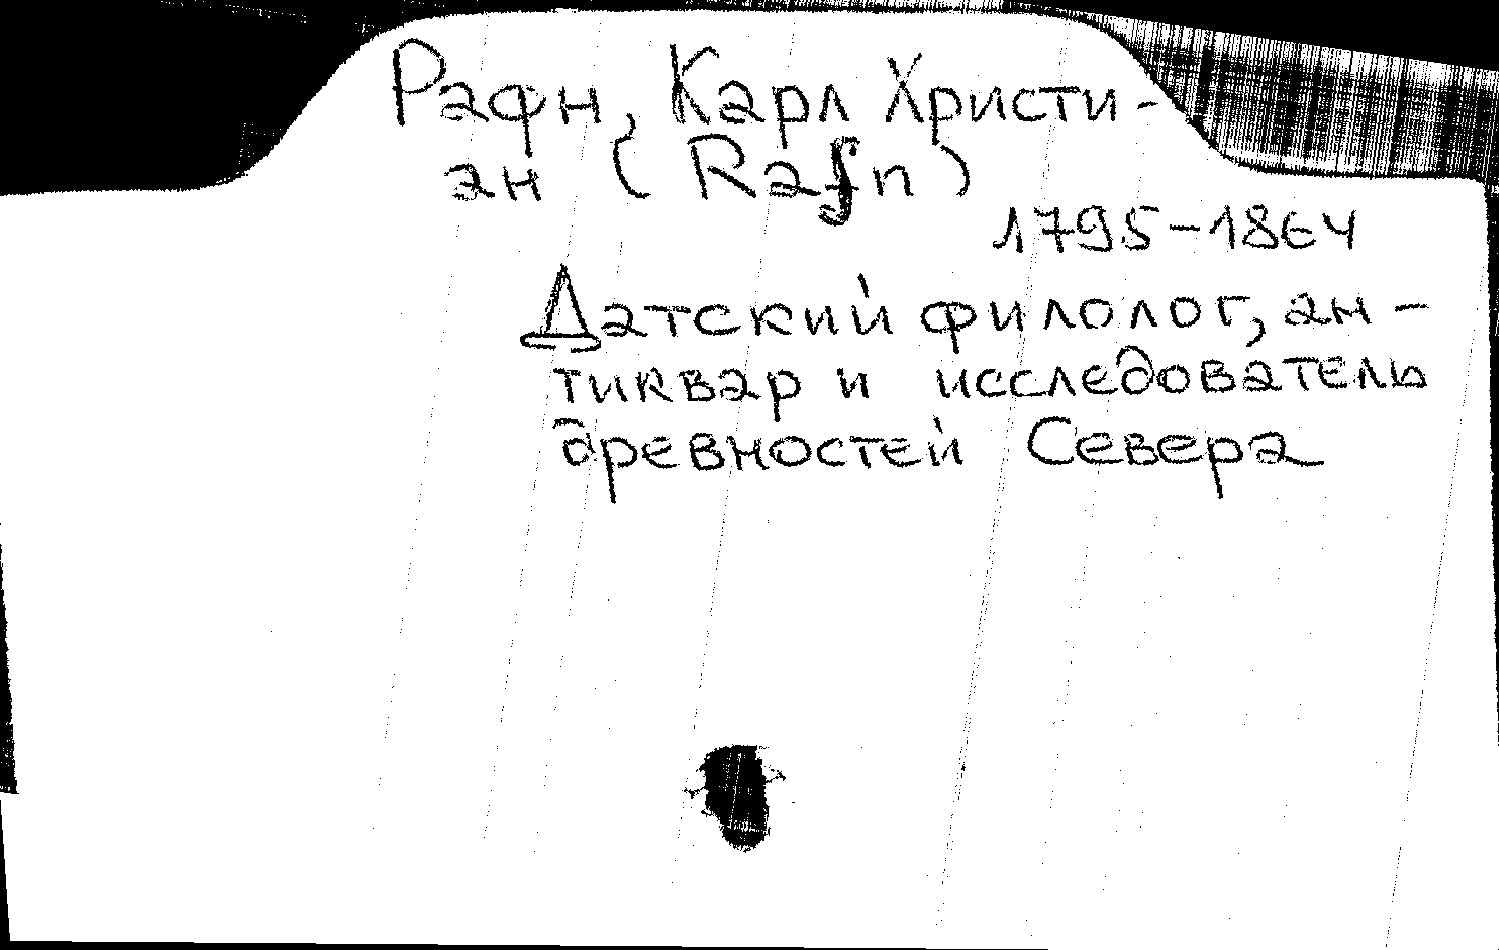 Рафн, Карл Христи-
ан (Rafn)
1795-1864
Датский филолог, ан-
тиквар и исследователь
древностей Севера